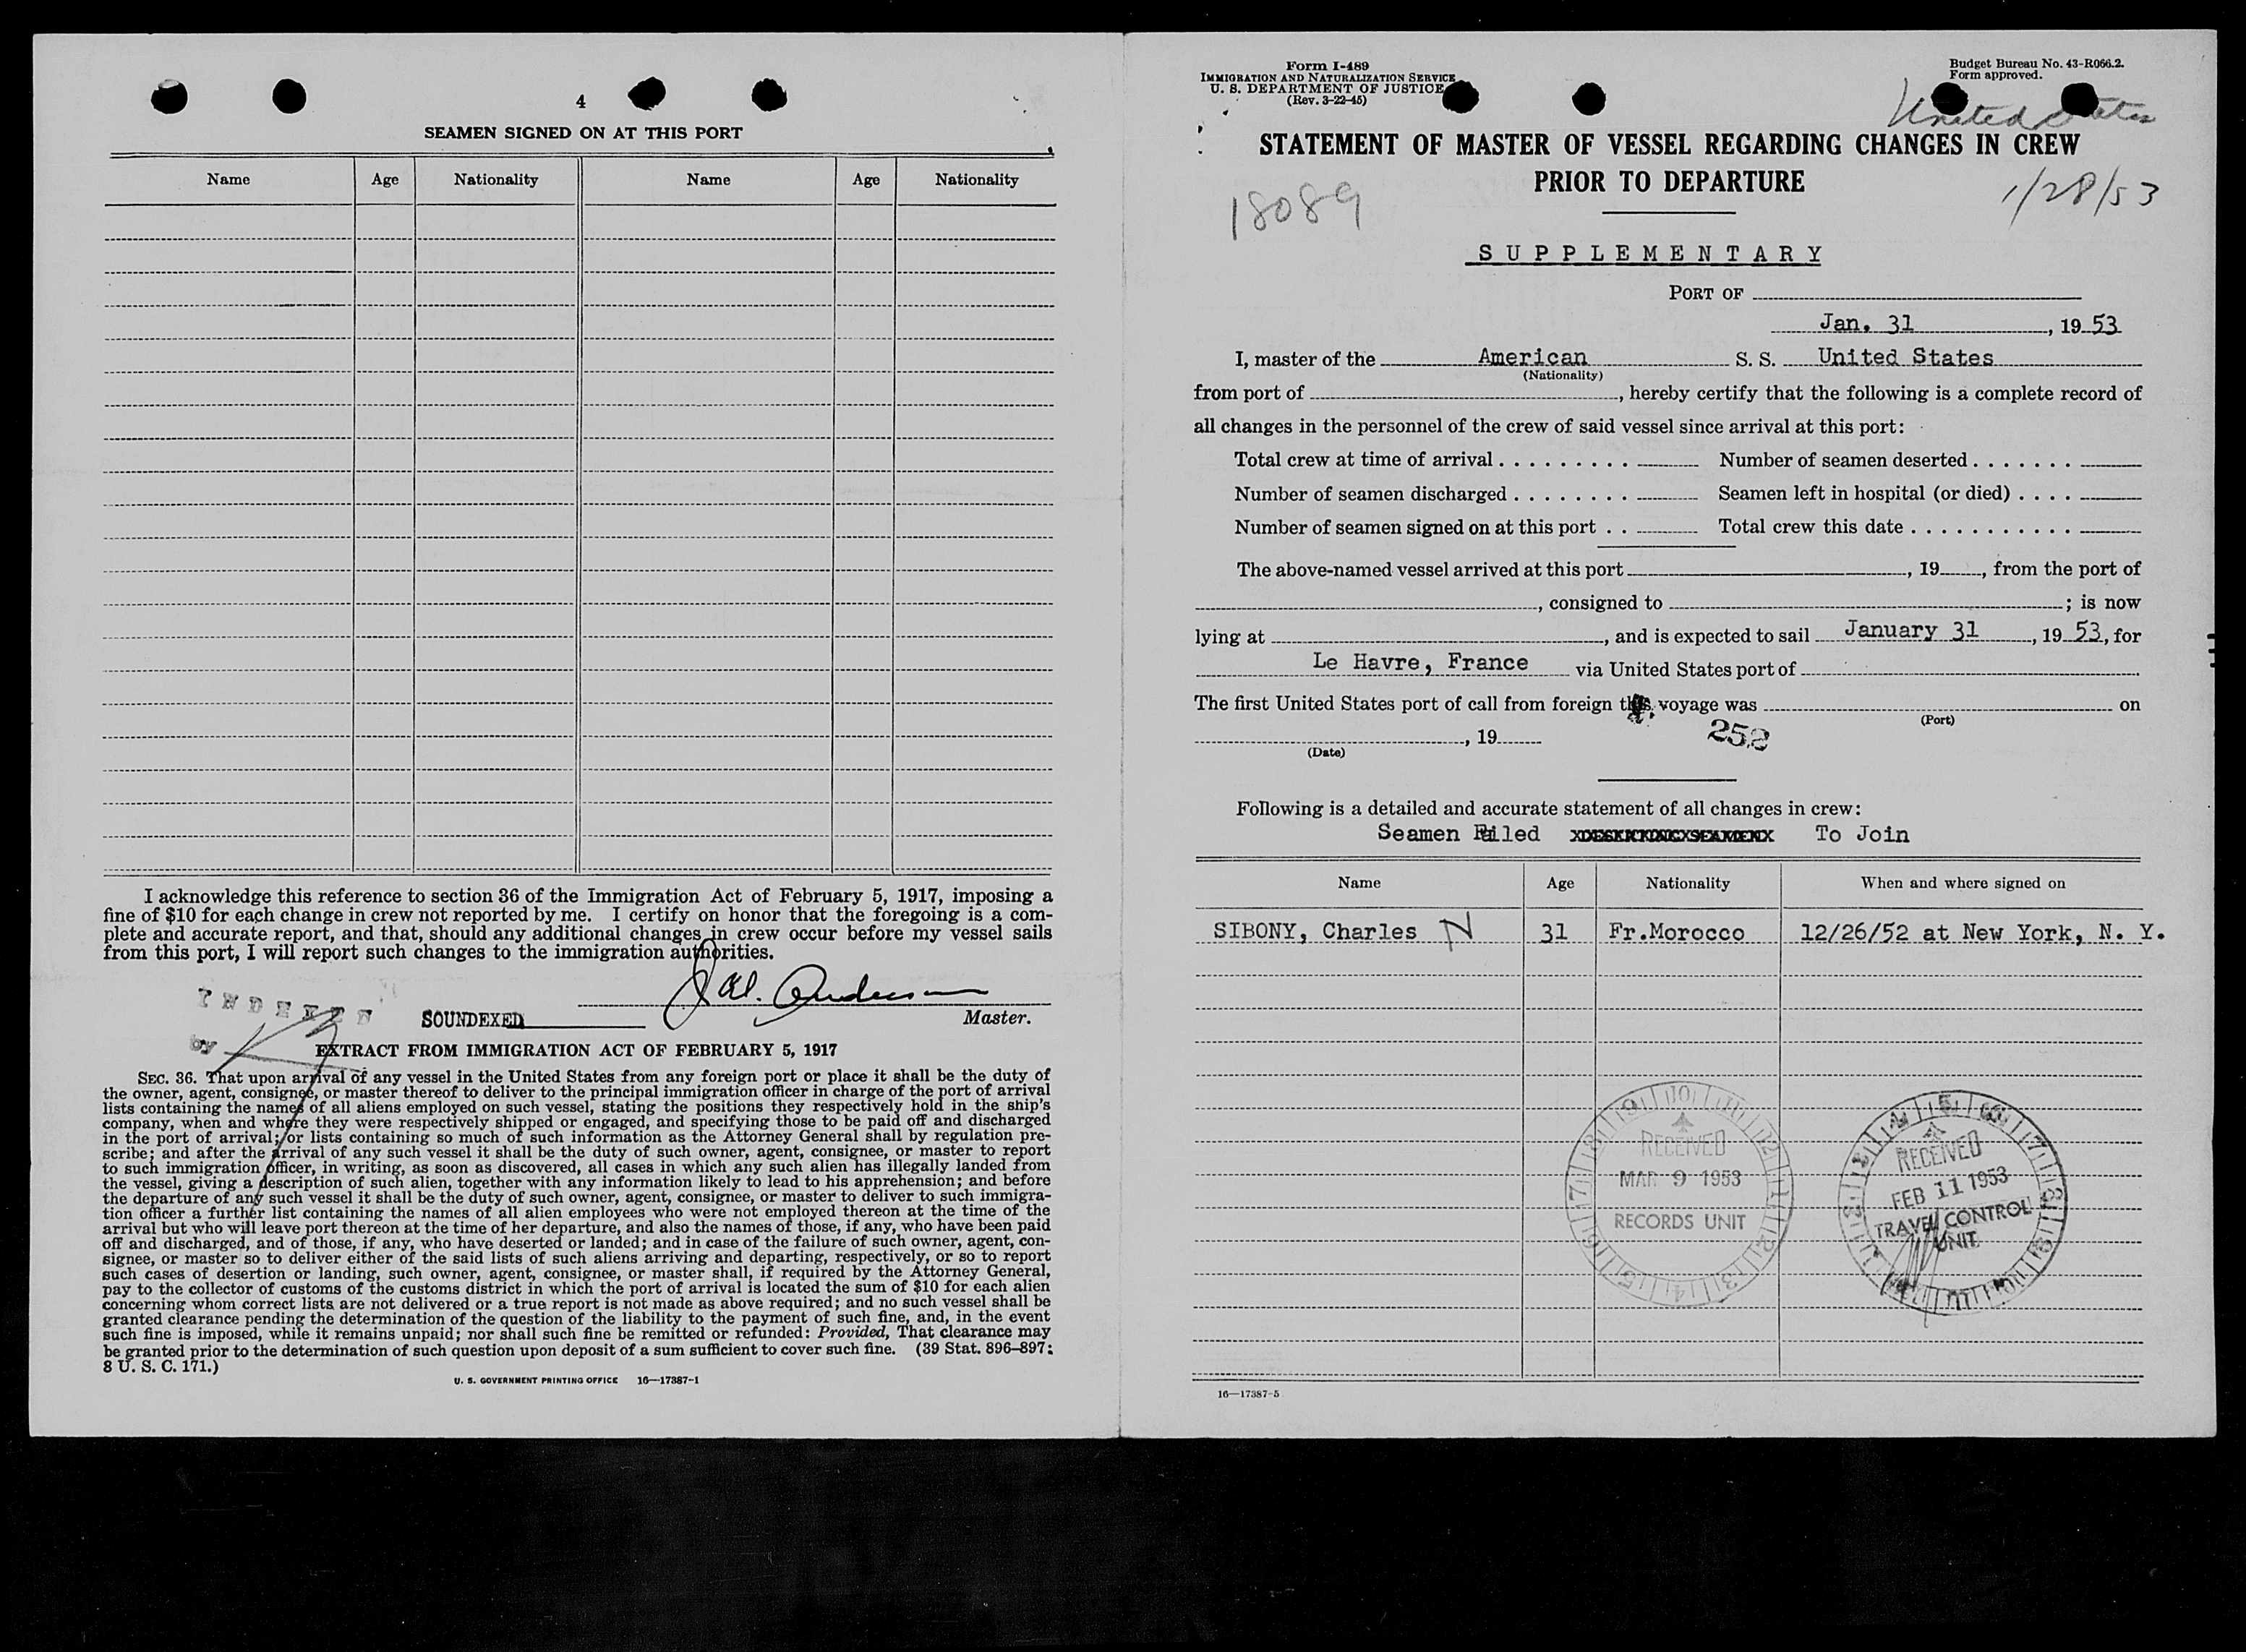 4
SEAMEN SIGNED ON AT THIS PORT
Name Age Nationality Name Age Nationality
I acknowledge this reference to section 36 of the Immigration Act of February 5, 1917, imposing a
fine of $10 for each change in crew not reported by me. I certify on honor that the foregoing is a com-
plete and accurate report, and that, should any additional changes in crew occur before my vessel sails
from this port, I will report such changes to the immigration authorities.
J. W. Anderson
INDEXED
SOUNDEXED
Master.
by
EXTRACT FROM IMMIGRATION ACT OF FEBRUARY 5, 1917
SEC. 36. That upon arrival of any vessel in the United States from any foreign port or place it shall be the duty of
the owner, agent, consignee, or master thereof to deliver to the principal immigration officer in charge of the port of arrival
lists containing the names of all aliens employed on such vessel, stating the positions they respectively hold in the ship's
company, when and where they were respectively shipped or engaged, and specifying those to be paid off and discharged
in the port of arrival; or lists containing so much of such information as the Attorney General shall by regulation pre-
scribe; and after the arrival of any such vessel it shall be the duty of such owner, agent, consignee, or master to report
to such immigration officer, in writing, as soon as discovered, all cases in which any such alien has illegally landed from
the vessel, giving a description of such alien, together with any information likely to lead to his apprehension; and before
the departure of any such vessel it shall be the duty of such owner, agent, consignee, or master to deliver to such immigra-
tion officer a further list containing the names of all alien employees who were not employed thereon at the time of the
arrival but who will leave port thereon at the time of her departure, and also the names of those, if any, who have been paid
off and discharged, and of those, if any, who have deserted or landed; and in case of the failure of such owner, agent, con-
signee, or master so to deliver either of the said lists of such aliens arriving and departing, respectively, or so to report
such cases of desertion or landing, such owner, agent, consignee, or master shall, if required by the Attorney General,
pay to the collector of customs of the customs district in which the port of arrival is located the sum of $10 for each alien
concerning whom correct lists are not delivered or a true report is not made as above required; and no such vessel shall be
granted clearance pending the determination of the question of the liability to the payment of such fine, and, in the event
such fine is imposed, while it remains unpaid; nor shall such fine be remitted or refunded: Provided, That clearance may
be granted prior to the determination of such question upon deposit of a sum sufficient to cover such fine. (39 Stat. 896–897;
8 U. S. C. 171.)
U. S. GOVERNMENT PRINTING OFFICE 16—17387-1
Form I-489
IMMIGRATION AND NATURALIZATION SERVICE
U. S. DEPARTMENT OF JUSTICE
(Rev. 3-22-45)
Budget Bureau No. 43-R066.2.
Form approved.
United States
STATEMENT OF MASTER OF VESSEL REGARDING CHANGES IN CREW
PRIOR TO DEPARTURE
1/28/53
18089
SUPPLEMENTARY
PORT OF
Jan. 31, 1953
I, master of the American S. S. United States
(Nationality)
from port of , hereby certify that the following is a complete record of
all changes in the personnel of the crew of said vessel since arrival at this port:
Total crew at time of arrival . . . . . . . . . Number of seamen deserted . . . . . . .
Number of seamen discharged . . . . . . . . Seamen left in hospital (or died) . . . .
Number of seamen signed on at this port . . Total crew this date . . . . . . . . . . .
The above-named vessel arrived at this port , 19 , from the port of
, consigned to ; is now
lying at , and is expected to sail January 31, 1953, for
Le Havre, France via United States port of
The first United States port of call from foreign this voyage was on
(Port)
, 19
252
(Date)
Following is a detailed and accurate statement of all changes in crew:
Seamen Failed To Join
Name Age Nationality When and where signed on
SIBONY, Charles N 31 Fr.Morocco 12/26/52 at New York, N. Y.
RECEIVED
MAR 9 1953
RECORDS UNIT
RECEIVED
FEB 11 1953
TRAVEL CONTROL
UNIT
16—17387-5